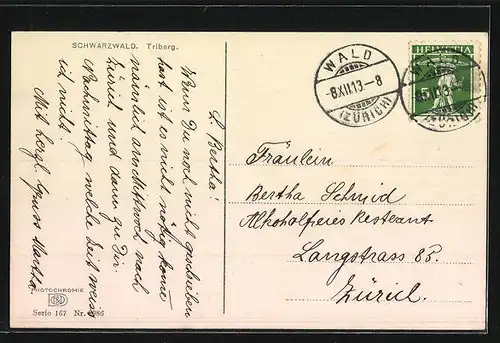 SCHWARZWALD. Triberg.
L. Bertha!
Wenn Du noch nicht geschrieben
hast ist es nicht nötig komme
nämlich am Mittwoch nach
Zürich und dann zu Dir.
Nachmittag welche Zeit weiss
ich nicht.
Mit herzl. Gruss Martha
PHOTOCHROMIE
Serie 167 Nr.
WALD
-8.XII.13.-8
(ZÜRICH)
HELVETIA
5
WALD
(ZÜRICH)
Fräulein
Bertha Schmid
Alkoholfreies Restaurant
Langstrass 85.
Zürich.